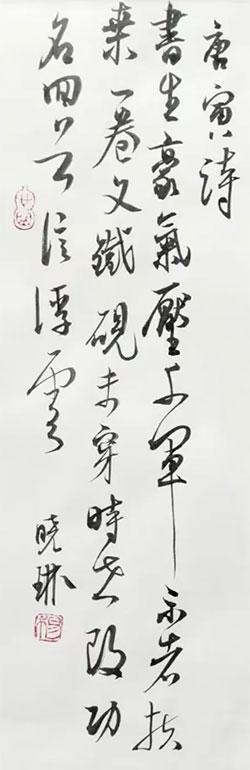 唐寅詩
書生豪氣壓千軍示若扶
桑一卷文鐵硯未穿時世改功
名回首信浮雲
晓琳